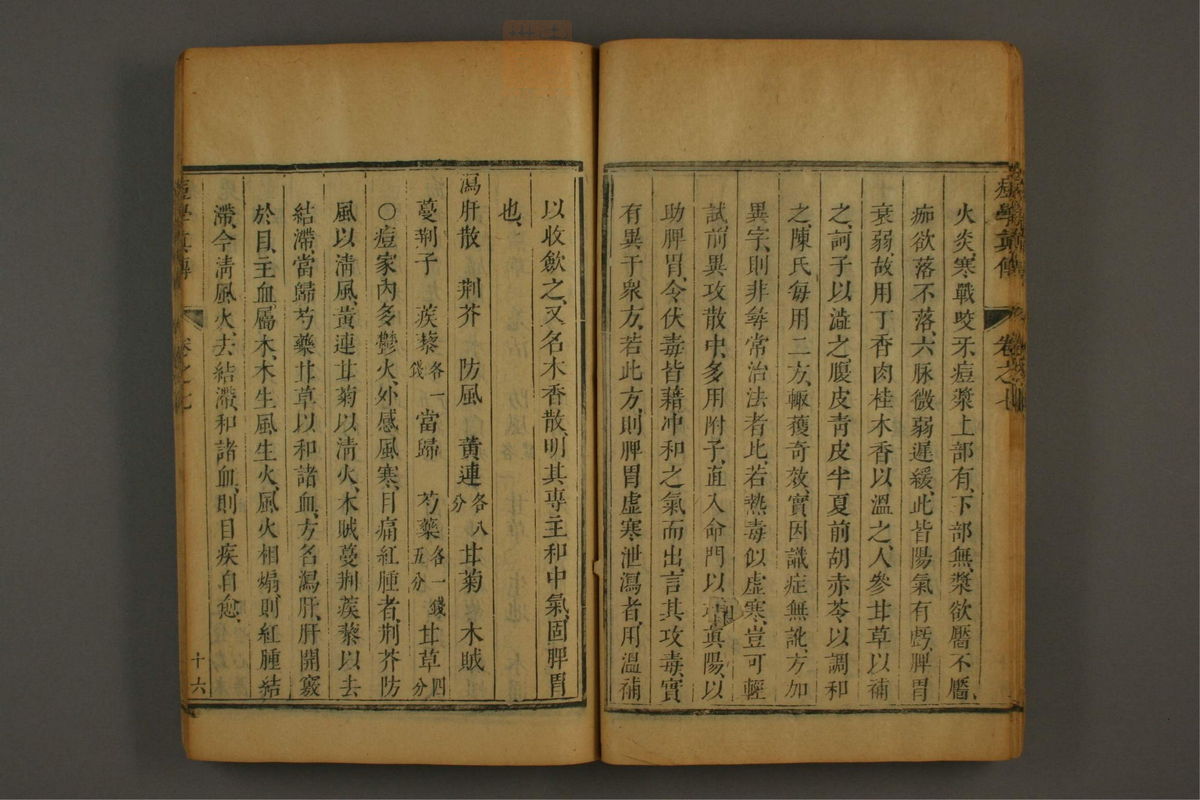 火炎寒戰咬牙痘漿上部有下部無漿欲靨不靨、
痂欲落不落、六脉微弱遲緩、此皆陽氣有虧、脾胃
衰弱故用丁香肉桂木香以溫之、人參甘草以補
之、訶子以澁之腹皮靑皮半夏前胡赤苓以調和
之、陳氏每用二方、輙獲奇效、實因識症無訛、方加
異字、則非尋常治法者比、若熱毒似虛寒、豈可輕
試前異攻散中、多用附子、直入命門以 眞陽、以
助脾胃、令伏毒皆藉冲和之氣而出、言其攻毒、實
有異于衆方、若此方、則脾胃虛寒泄瀉者、用溫補
以收斂之、又名木香散、明其專主和中氣、固脾胃
也、
瀉肝散 荆芥 防風 黃連各八分 甘菊 木賊
蔓荆子 蒺藜各一錢 當歸 芍藥各一錢五分 甘草四分
○痘家內多鬱火、外感風寒、目痛紅腫者、荆芥防
風以清風、黃連甘菊以清火、木賊蔓荆蒺藜以去
結滯、當歸芍藥甘草以和諸血、方名瀉肝、肝開竅
於目、主血、屬木、木生風生火、風火相煽、則紅腫結
滯、令清風火、去結滯、和諸血、則目疾自愈、
痘學眞傳 卷之七
痘學眞傳 卷之七 十六